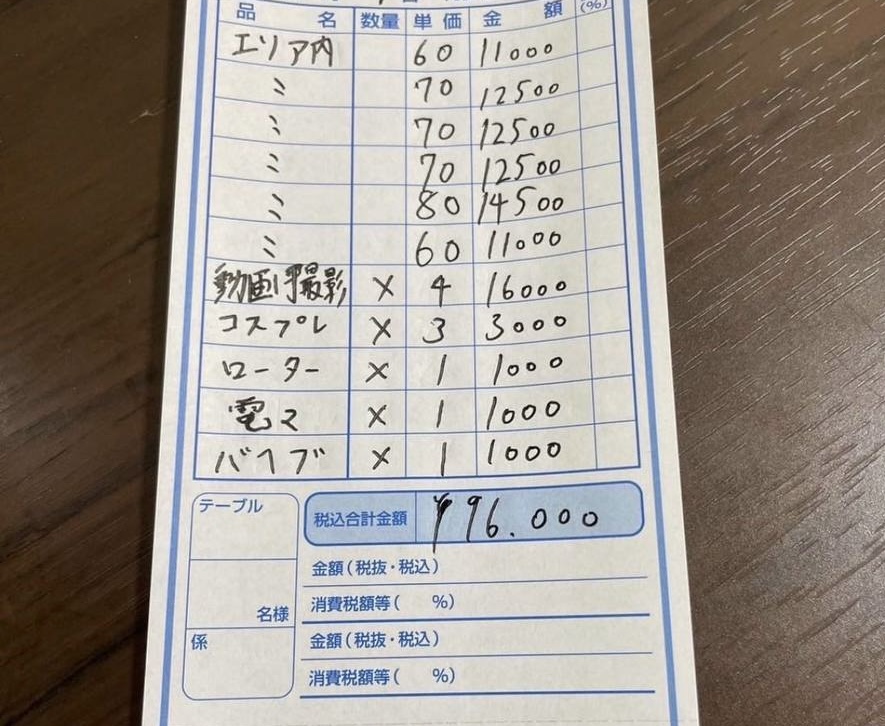 品名 数量 単価 金額 (%)
エリア内 60 11000
〃 70 12500
〃 70 12500
〃 70 12500
〃 80 14500
〃 60 11000
動画撮影 × 4 16000
コスプレ × 3 3000
ローター × 1 1000
電マ × 1 1000
バイブ × 1 1000
テーブル
税込合計金額 ¥96.000
金額(税抜・税込)
名様
消費税額等( %)
係
金額(税抜・税込)
消費税額等( %)